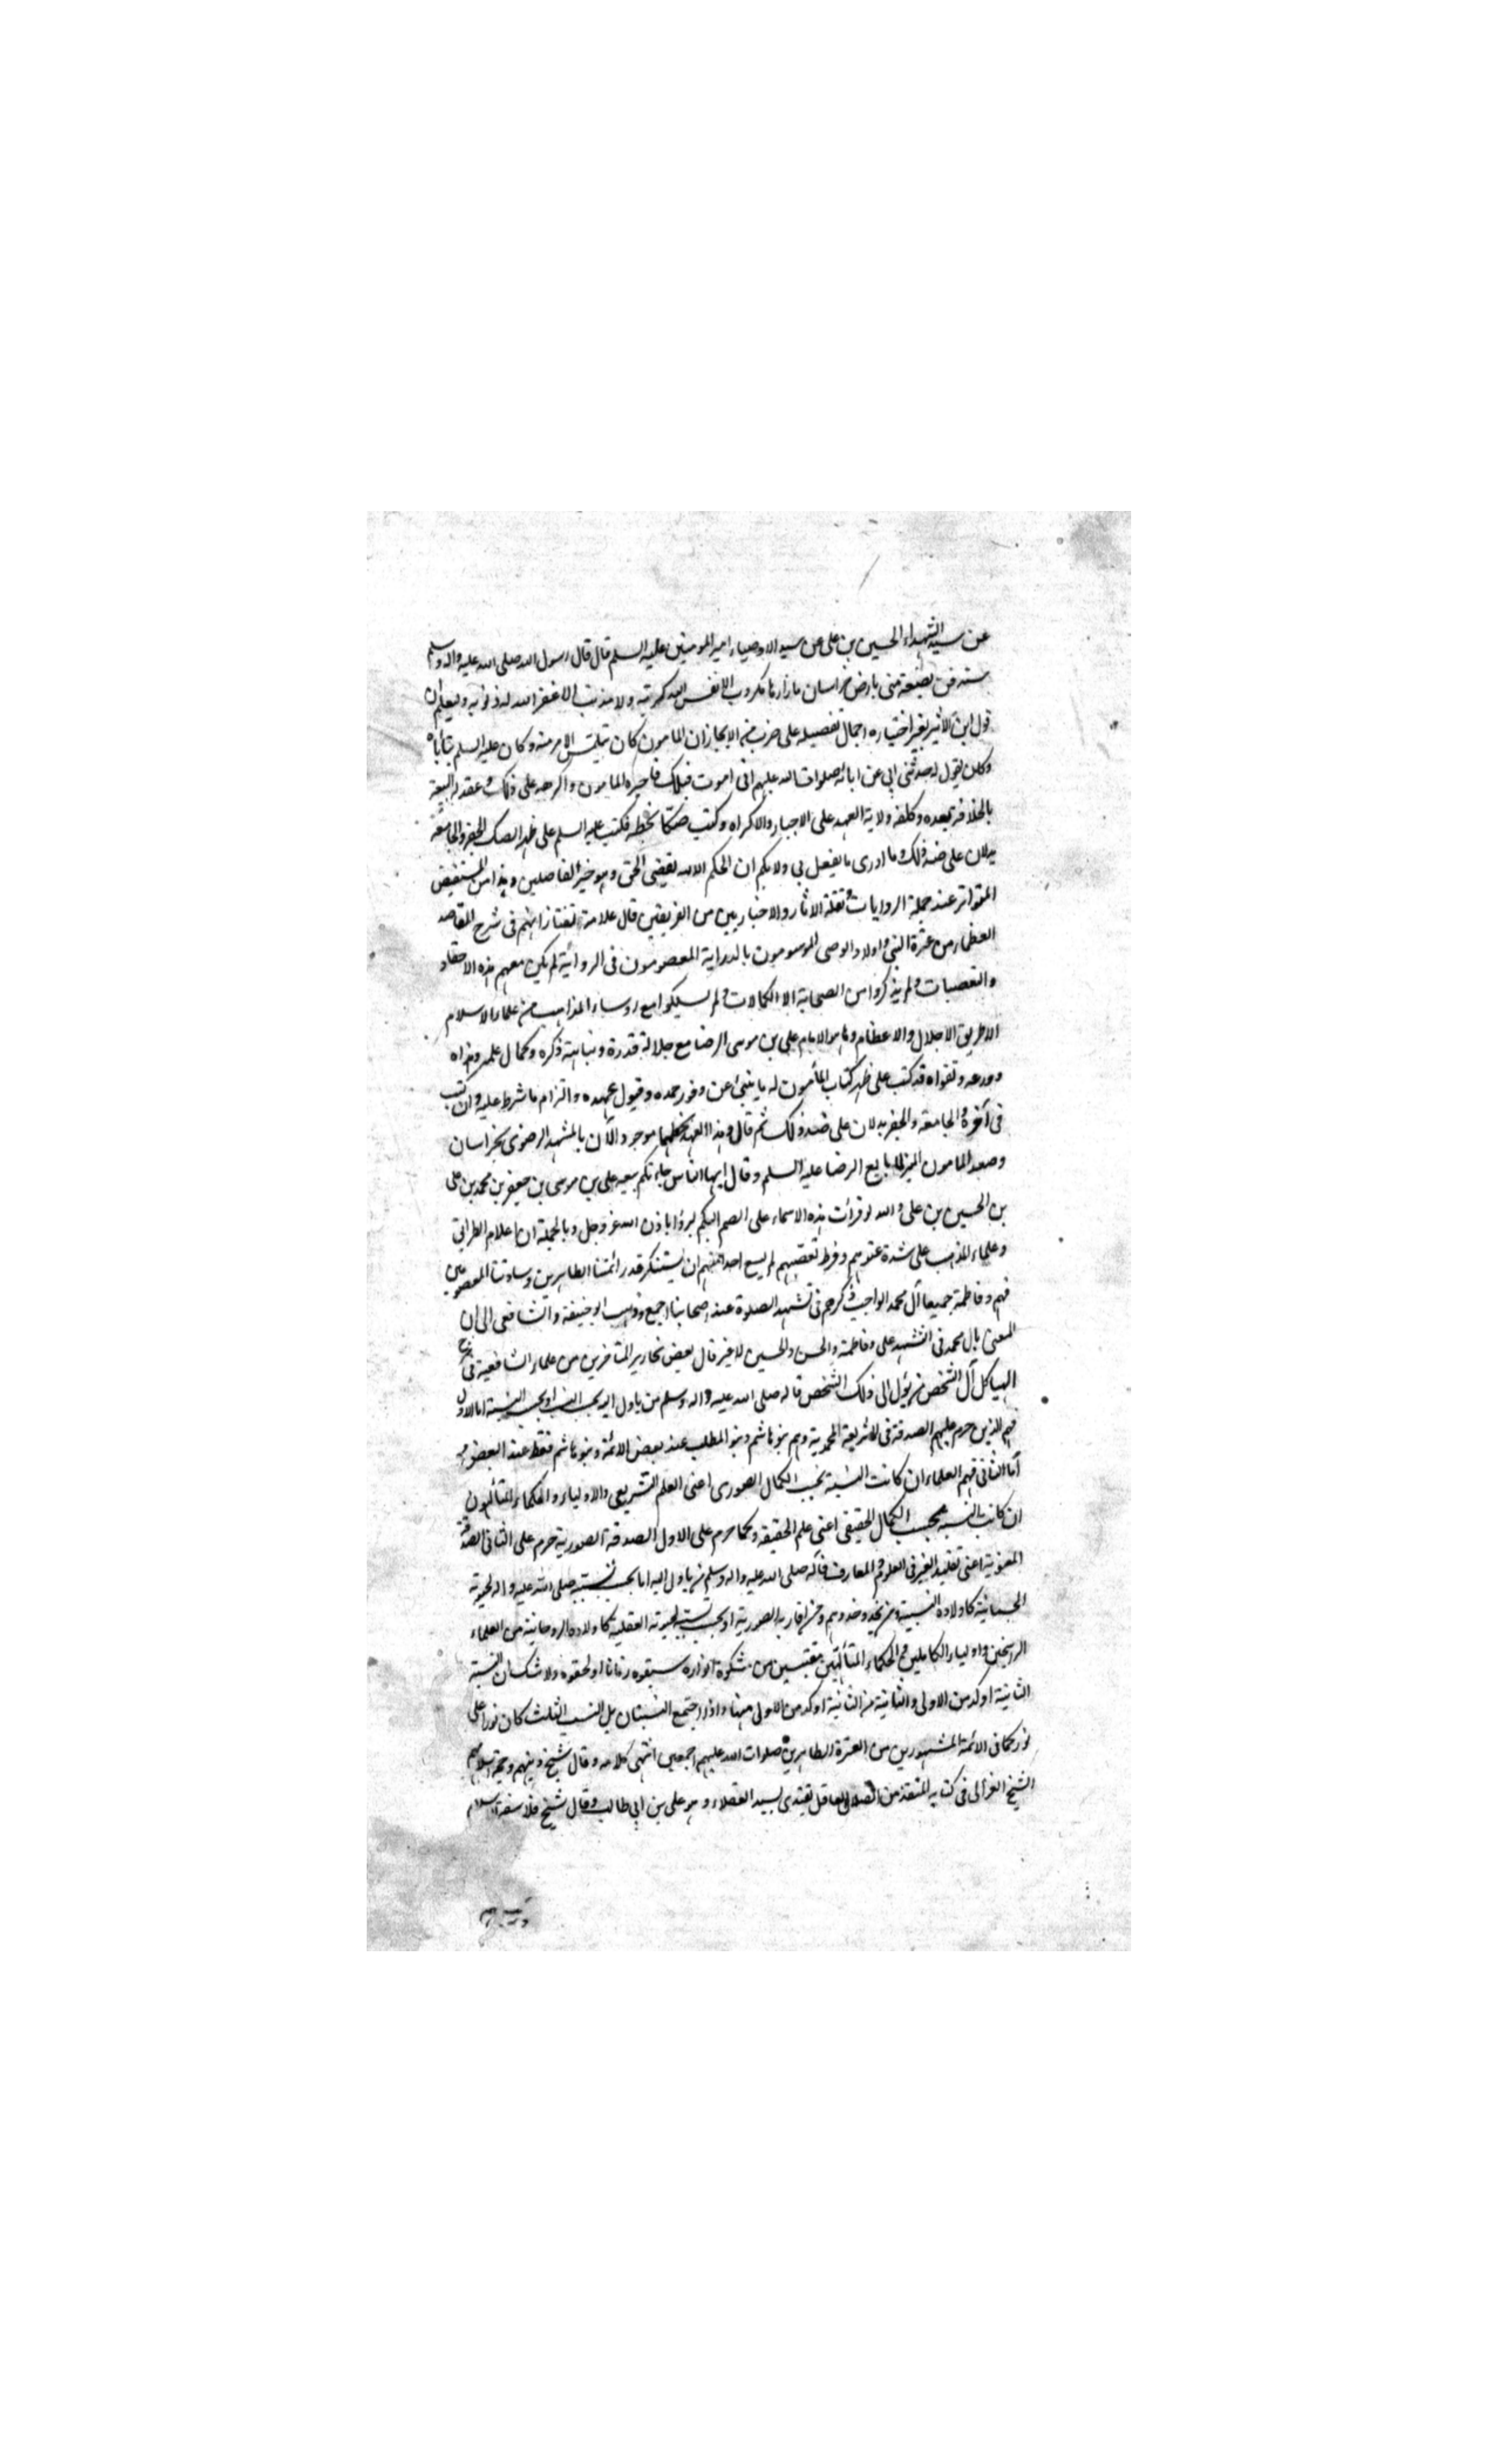 عن سيد الشهداء الحسين بن علي عن سيد الاوصياء امير المومنين عليه السلم قال قال رسول الله صلى الله عليه واله وسلم
ستدفن بضعة منى بارض خراسان ما زارها مكروب الا نفس الله كربته ولا مذنب الا غفر الله له ذنوبه وليعلم ان
قول ابن الاثير بغير اختياره اجمال تفصيله على ضرب من الايجاز ان المامون كان يلتمس الامر منه وكان عليه السلم يتأباه
وكان يقول له حدثني ابي عن ابائه صلوات الله عليهم انى اموت قبلك فاجبره المامون واكرهه على ذلك وعقد له البيعة
بالخلافة بعده وكلفه ولاية العهد على الاجبار والاكراه وكتب صكا بخطه فكتب عليه السلم على ظهر الصك الجفر والجامعة
يدلان على ضد ذلك وما ادرى ما يفعل بي ولا بكم ان الحكم الا لله يقضى الحق وهو خير الفاصلين وهذا من المستفيض
المتواتر عند حملة الروايات ونقلة الاثار والاخباريين من الفريقين قال علامة تفتازانهم فى شرح المقاصد
العظماء من عترة النبي واولاد الوصى الموسومون بالدراية المعصومون فى الرواية لم يكن معهم هذه الاحقاد
والتعصبات ولم يذكروا من الصحابة الا الكمالات ولم يسلكوا مع روساء المذاهب من علماء الاسلام
الا طريق الاجلال والاعظام وها هو الامام على بن موسى الرضا مع جلالة قدره ونباهة ذكره وكمال علمه وهداه
وورعه وتقواه قد كتب على ظهر كتاب المأمون له ما ينبئ عن وفور حمده وقبول عهده والتزام ما شرط عليه وان كتب
فى آخره والجامعة والجفر يدلان على ضد ذلك ثم قال وهذا العهد بخطهما موجود الآن بالمشهد الرضوى بخراسان
وصعد المامون المنبر لما بايع الرضا عليه السلم وقال ايها الناس جاءتكم بيعة على بن موسى بن جعفر بن محمد بن على
بن الحسين بن على والله لو قرأت هذه الاسماء على الصم البكم لبرؤا باذن الله عز وجل وبالجملة ان اعلام الطرائق
وعلماء المذاهب على شدة عتوهم وفرط تعصبهم لم يسع احدا منهم ان يستنكر قدر ائمتنا الطاهرين وسادتنا المعصومين
فهم وفاطمة جميعا آل محمد الواجب ذكرهم فى تشهد الصلوة عند اصحابنا اجمع وذهب ابو حنيفة والشافعى الى ان
المعنى بال محمد فى التشهد على وفاطمة والحسن والحسين لا غير قال بعض نحارير المتاخرين من علماء الشافعية فى شرح
الهياكل آل الشخص من يؤل الى ذلك الشخص فاله صلى الله عليه واله وسلم من يأول اليه بحسب النسب او بحسب النسبة اما الاول
فهم الذين حرم عليهم الصدقة فى الشريعة المحمدية وهم بنو هاشم وبنو المطلب عند بعض الائمة وبنو هاشم فقط عند البعض
أما الثانى فهم العلماء ان كانت النسبة بحسب الكمال الصورى اعنى العلم التشريعى والاولياء والحكماء المتألهون
ان كانت النسبة بحسب الكمال الحقيقى اعنى علم الحقيقة وكما حرم على الاول الصدقة الصورية حرم على الثانى الصدقة
المعنوية اعنى تقليد الغير فى العلوم والمعارف فآله صلى الله عليه واله وسلم من ياول اليه اما بحسب نسبته صلى الله عليه واله لحيوته
الجسمانية كاولاده النسبية ومن يحذو حذوهم من اقاربه الصورية او بحسب نسبته لحيوته العقلية كاولاده الروحانية من العلماء
الراسخين واولياء الكاملين والحكماء المتألهين مقتبسين من مشكوة انواره سبقوه زمانا او لحقوه ولا شك ان النسبة
الثانية اوكد من الاولى والثانية من الثانية اوكد من الاولى منها واذا اجتمع النسبتان بل النسب الثلث كان نورا على
نور كما فى الائمة المشهورين من العترة الطاهرين صلوات الله عليهم اجمعين انتهى كلامه وقال شيخ دينهم وحجة اسلامهم
الشيخ الغزالى فى كتابه المنقذ من الضلال العاقل يقتدى بسيد العقلاء وهو على بن ابي طالب وقال شيخ فلاسفة الاسلام